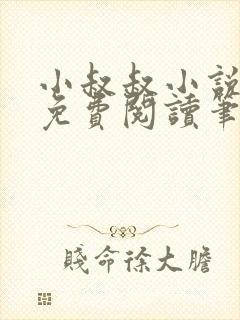 小叔叔小說
免費閱讀筆
賤命徐大膽